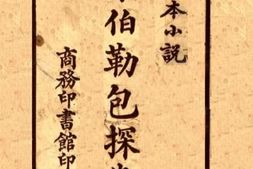 本小說
伯勒包探
商務印書館印